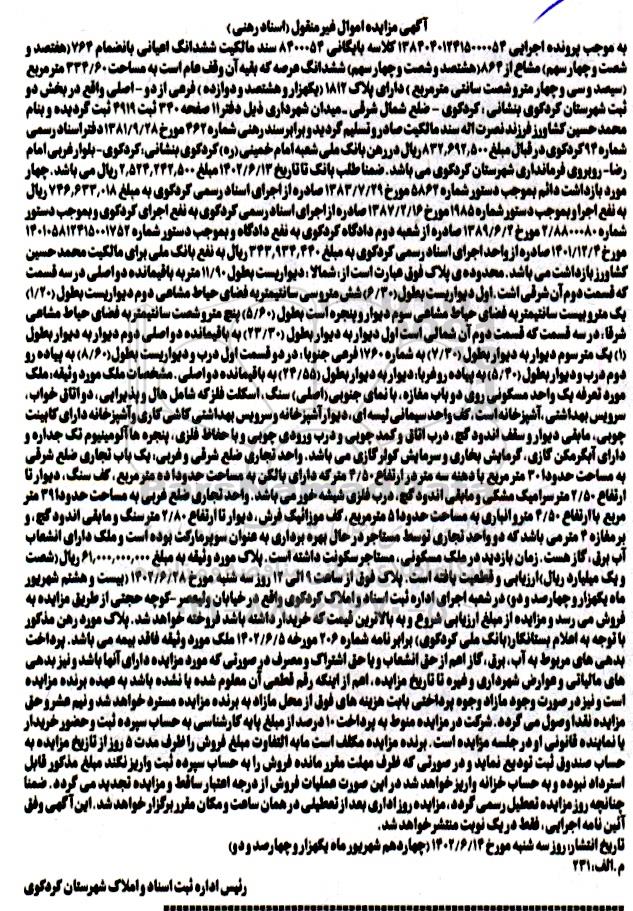 آگهی مزایده اموال غیرمنقول (اسناد رهنی)
به موجب پرونده اجرایی ۱۳۸۳۰۴۰۱۲۴۱۵۰۰۰۰۵۴ کلاسه بایگانی ۸۴۰۰۰۵۴ سند مالکیت ششدانگ اعیانی بانضمام ۷۶۴ (هفتصد و
شصت و چهار سهم) مشاع از ۸۶۴ (هشتصد و شصت و چهار سهم) ششدانگ عرصه که بقیه آن وقف عام است به مساحت ۳۳۴/۶۰ متر مربع
(سیصد و سی و چهار متر و شصت سانتی متر مربع) دارای پلاک ۱۸۱۲ (یکهزار و هشتصد و دوازده) فرعی از دو - اصلی واقع در بخش دو
ثبت شهرستان کردکوی بنشانی، کردکوی - ضلع شمال شرقی - میدان شهرداری ذیل دفتر ۱۱ صفحه ۳۴۰ ثبت ۴۹۱۹ ثبت گردیده و بنام
محمد حسین کشاورز فرزند نصرت اله سند مالکیت صادر و تسلیم گردید و برابر سند رهنی شماره ۴۶۲ مورخ ۱۳۸۱/۹/۲۸ دفتر اسناد رسمی
شماره ۹۴ کردکوی در قبال مبلغ ۸۳۲,۶۹۲,۵۰۰ ریال در رهن بانک ملی شعبه امام خمینی (ره) کردکوی بنشانی: کردکوی - بلوار غربی امام
رضا - روبروی فرمانداری شهرستان کردکوی می باشد. ضمنا طلب بانک تا تاریخ ۱۴۰۲/۶/۱۳ مبلغ ۲,۵۲۳,۲۴۲,۵۰۰ ریال می باشد. چهار
مورد بازداشت دائم بموجب دستور شماره ۵۸۶۲ مورخ ۱۳۸۳/۷/۲۹ صادره از اجرای اسناد رسمی کردکوی به مبلغ ۷۴۶,۶۳۳,۰۱۸ ریال
به نفع اجرا و بموجب دستور شماره ۱۹۸۵ مورخ ۱۳۸۷/۲/۱۶ صادره از اجرای اسناد رسمی کردکوی به نفع اجرای کردکوی و بموجب دستور
شماره ۲/۸۸۰۰۰۸۰ مورخ ۱۳۸۹/۶/۲ صادره از شعبه دوم دادگاه کردکوی به نفع دادگاه و بموجب دستور شماره ۱۴۰۱۰۵۸۱۲۴۱۵۰۰۱۷۵۲
مورخ ۱۴۰۱/۱۲/۴ صادره از واحد اجرای اسناد رسمی کردکوی به مبلغ ۳۴۳,۹۳۴,۴۳۰ ریال به نفع بانک ملی برای مالکیت محمد حسین
کشاورز بازداشت می باشد. محدوده ی پلاک فوق عبارت است از، شمالا: دیواریست بطول ۱۱/۹۰ متر به باقیمانده دو اصلی در سه قسمت
که قسمت دوم آن شرقی اشت. اول دیواریست بطول (۶/۳۰) شش متر و سی سانتیمتر به فضای حیاط مشاعی دوم دیواریست بطول (۱/۲۰)
یک متر و بیست سانتیمتر به فضای حیاط مشاعی سوم دیوار و پنجره است بطول (۵/۶۰) پنج متر و شصت سانتیمتر به فضای حیاط مشاعی
شرقا: در سه قسمت که قسمت دوم آن شمالی است اول دیوار به دیوار بطول (۲۳/۳۰) به باقیمانده دو اصلی دوم دیوار به دیوار بطول
(۱) یک متر سوم دیوار به دیوار بطول (۷/۳۰) به شماره ۱۷۶۰ فرعی جنوبا: در دو قسمت اول درب و دیواریست بطول (۸/۶۰) به پیاده رو
دوم درب و دیوار بطول (۵/۳۰) به پیاده رو غربا: دیوار به دیوار بطول (۲۴/۵۵) به باقیمانده دو اصلی. مشخصات ملک مورد وثیقه: ملک
مورد تعرفه یک واحد مسکونی روی دو باب مغازه، با نمای جنوبی (اصلی) سنگ، اسکلت فلز که شامل هال و پذیرایی، دو اتاق خواب،
سرویس بهداشتی، آشپزخانه است، کف واحد سیمانی لیسه ای، دیوار آشپزخانه و سرویس بهداشتی کاشی کاری و آشپزخانه دارای کابینت
چوبی، مابقی دیوار و سقف اندود گچ، درب اتاق و کمد چوبی و درب ورودی چوبی و با حفاظ فلزی، پنجره ها آلومینیوم تک جداره و
دارای آبگرمکن گازی، گرمایش بخاری و سرمایش کولر گازی می باشد. واحد تجاری ضلع شرقی و غربی، یک باب تجاری ضلع شرقی
به مساحت حدودا ۳۰ متر مربع با دهنه سه متر در ارتفاع ۴/۵۰ متر که دارای بالکن به مساحت حدودا ده متر مربع، کف سنگ، دیوار تا
ارتفاع ۲/۵۰ متر سرامیک مشکی و مابقی اندود گچ، درب فلزی شیشه خور می باشد. واحد تجاری ضلع غربی به مساحت حدودا ۳۹ متر
مربع با ارتفاع ۴/۵۰ متر و انباری به مساحت حدودا ۵ متر مربع، کف موزائیک فرش، دیوار تا ارتفاع ۲/۸۰ متر سنگ و مابقی اندود گچ، و
بر مغازه ۴ متر می باشد که دو واحد تجاری توسط مستاجر در حال بهره برداری به عنوان سوپرمارکت بوده است و ملک دارای انشعاب
آب برق، گاز هست. زمان بازدید در ملک مسکونی، مستاجر سکونت داشته است. پلاک مورد وثیقه به مبلغ ۶۱,۰۰۰,۰۰۰,۰۰۰ ریال (شصت
و یک میلیارد ریال) ارزیابی و قطعیت یافته است. پلاک فوق از ساعت ۹ الی ۱۲ روز سه شنبه مورخ ۱۴۰۲/۶/۲۸ (بیست و هشتم شهریور
ماه یکهزار و چهارصد و دو) در شعبه اجرای اداره ثبت اسناد و املاک کردکوی واقع در خیابان ولیعصر - کوچه حجتی از طریق مزایده به
فروش می رسد و مزایده از مبلغ ارزیابی شروع و به بالاترین قیمت که خریدار داشته باشد فروخته خواهد شد. پلاک مورد رهن مذکور
با توجه به اعلام بستانکار (بانک ملی کردکوی) برابر نامه شماره ۲۰۶ مورخه ۱۴۰۲/۶/۵ ملک مورد وثیقه فاقد بیمه می باشد. پرداخت
بدهی های مربوط به آب، برق، گاز اعم از حق انشعاب و یا حق اشتراک و مصرف در صورتی که مورد مزایده دارای آنها باشد و نیز بدهی
های مالیاتی و عوارض شهرداری و غیره تا تاریخ مزایده، اعم از اینکه رقم قطعی آن معلوم شده یا نشده باشد به عهده برنده مزایده
است و نیز در صورت وجود مازاد وجوه پرداختی بابت هزینه های فوق از محل مازاد به برنده مزایده مسترد خواهد شد و نیم عشر و حق
مزایده نقدا وصول می گردد. شرکت در مزایده منوط به پرداخت ۱۰ درصد از مبلغ پایه کارشناسی به حساب سپرده ثبت و حضور خریدار
یا نماینده قانونی او در جلسه مزایده است. برنده مزایده مکلف است مابه التفاوت مبلغ فروش را ظرف مدت ۵ روز از تاریخ مزایده به
حساب صندوق ثبت تودیع نماید و در صورتی که ظرف مهلت مقرر مانده فروش را به حساب سپرده ثبت واریز نکند مبلغ مذکور قابل
استرداد نبوده و به حساب خزانه واریز خواهد شد در این صورت عملیات فروش از درجه اعتبار ساقط و مزایده تجدید می گردد. ضمنا
چنانچه روز مزایده تعطیل رسمی گردد، مزایده روز اداری بعد از تعطیلی در همان ساعت و مکان مقرر برگزار خواهد شد. این آگهی وفق
آئین نامه اجرایی، فقط در یک نوبت منتشر خواهد شد.
تاریخ انتشار: روز سه شنبه مورخ ۱۴۰۲/۶/۱۴ (چهاردهم شهریور ماه یکهزار و چهارصد و دو)
م.الف: ۲۳۱
رئیس اداره ثبت اسناد و املاک شهرستان کردکوی